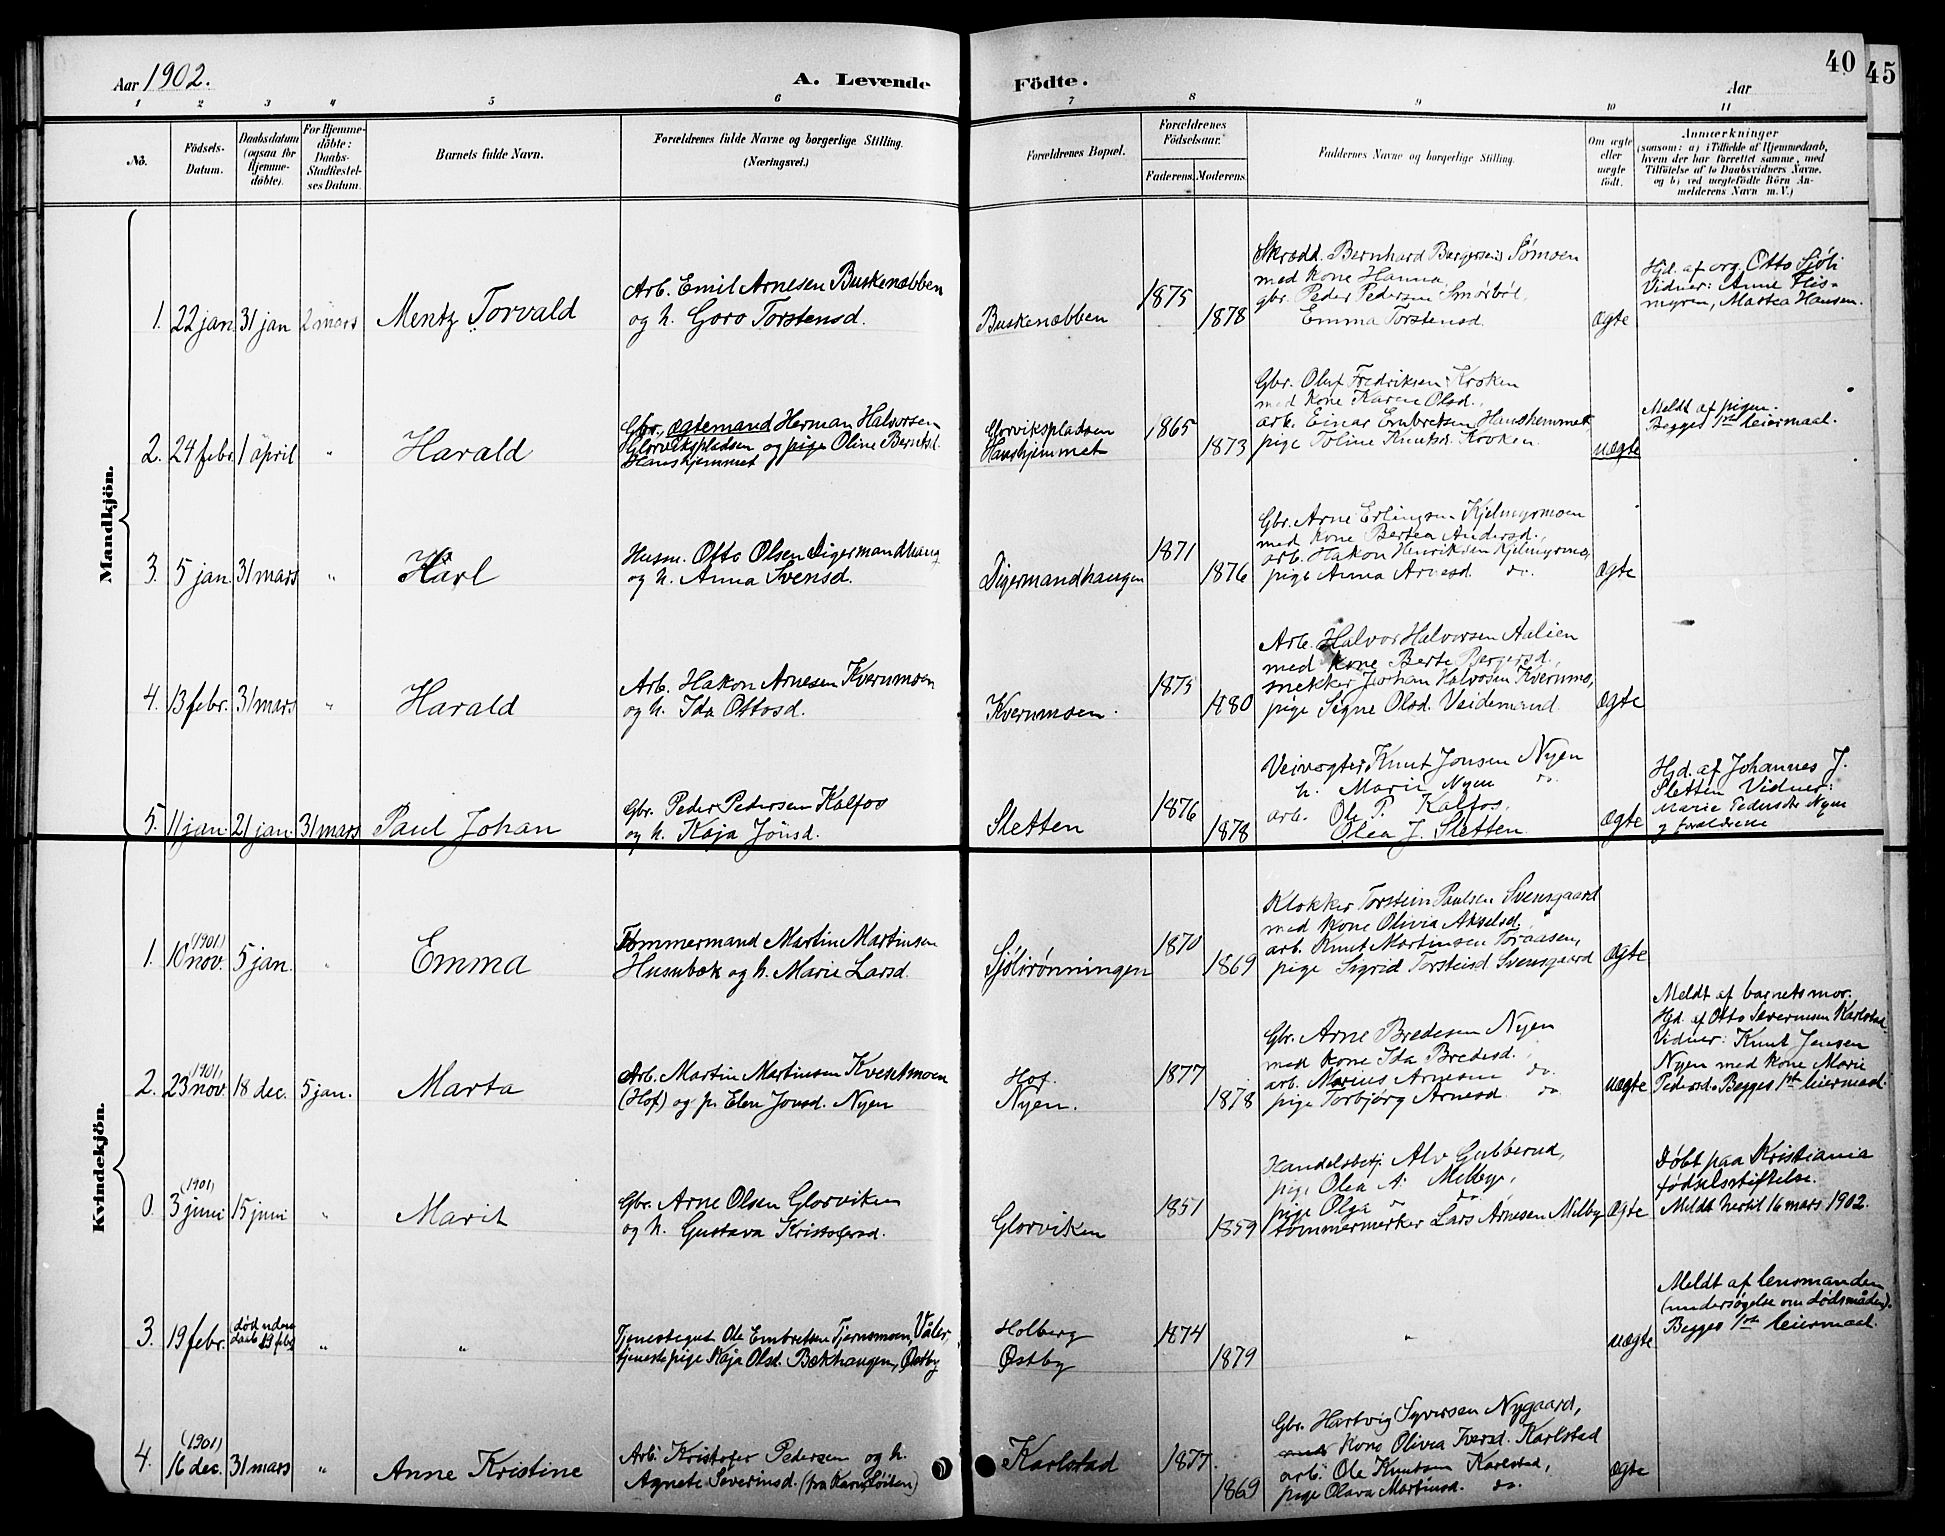 Aar 1902.
A. Levende Födte.
Aar
40
45
1 2 3 4 5 6 7 8 9 10 11
No.
Födsels-Datum.
Daabsdatum (ogsaa for Hjemme-döbte).
For Hjemme-döbte: Daabs-Stadfæstel-ses Datum.
Barnets fulde Navn.
Forældrenes fulde Navne og borgerlige Stilling. (Næringsvei.)
Forældrenes Bopæl.
Forældrenes Födselsaar.
Faderens. Moderens.
Faddernes Navne og borgerlige Stilling.
Om ægte eller uægte født.
Anmærkninger
(saasom: a) i Tilfælde af Hjemmedaab,
hvem der har forrettet samme, med
Tilføielse af to Daabsvidners Navne.
og b) ved uægtefødte Börn An-
melderens Navn m. V.)
Mandkjön.
1. 22 jan. 31 jan 2 mars Mentz Torvald
Arb. Emil Arnesen Buskenæbben
og h. Goro Torstensd.
Buskenæbben
1875
1878
Skrædd. Bernhard Bergersen Sømoen
med kone Hanna,
gbr. Peder Pedersen Smørbøl,
Emma Torstensd.
ægte
Hjd. af org. Otto Sjöli
Vidner: Anne Flis-
myren, Martea Hansen.
2. 24 febr. 1 april " Harald
Gbr., ægtemand Herman Halvorsen
Glorvikspladsen og pige Oline Berntsd.
Hanshjemmet
Glorvikspladsen
Hanshjemmet
1865
1873
Gbr. Oluf Fredriksen Kroken
med kone Karen Olsd.,
arb. Einar Embretsen Hanshemmet,
pige Toline Knutsd. Kroken.
uægte
Meldt af pigen.
Begges 1ste leiermaal.
3. 5 jan. 31 mars " Karl
Husm. Otto Olsen Digermandhaug
og h. Anna Svensd.
Digermandhaugen
1871
1876
Gbr. Arne Erlingsen Kjelmyrmoen
med kone Bertea Andersd.,
arb. Hakon Henriksen Kjelmyrmo,
pige Anna Arnesd. do.
ægte
4. 13 febr. 31 mars " Harald
Arb. Hakon Arnesen Kvernmoen
og h. Ida Ottosd.
Kvernmoen.
1875
1880
Arb. Halvor Halvorsen Aalien
med kone Berte Bergersd.,
snekker Johan Halvorsen Kvernmo,
pige Signe Olsd. Veidemand.
ægte
5. 11 jan. 21 jan. 31 mars Paul Johan
Gbr. Peder Pedersen Kalfos
og h. Kaja Jönsd.
Sletten
1876
1878
Veivogter Knut Jonsen Nyen
h. Marie Nyen do.
arb. Ole P. Kalfos,
Olea J. Sletten.
ægte
Hjd. af Johannes J.
Sletten Vidner:
Marie Pedersdtr Nyen
og forældrene
Kvindekjön.
1. (1901) 10 nov. 5 jan. " Emma
Tømmermand Martin Martinsen
Husubæk og h. Marie Larsd.
Sjölirønningen
1870
1869
Klokker Torstein Paulsen Svensgaard
med kone Olivia Akselsd.,
arb. Knut Martinsen Toraasen,
pige Sigrid Torsteisd Svensgaard
ægte
2. (1901) 23 nov. 18 dec. 5 jan. Marta
Arb. Martin Martinsen Kvesetmoen
(Hof) og p. Elen Jonsd. Nyen
Hof.
Nyen.
1877
1878
Gbr. Arne Bredesen Nyen
med kone Ida Bredesd.,
arb. Marius Arnesen do.
pige Torbjörg Arnesd. do
uægte
Meldt af barnets mor.
Hjd. af Otto Severinsen Karlstad.
Vidner: Knut Jensen
Nyen med kone Marie
Pedersd. Begges 1ste leiermaal.
0. (1901) 3 juni 15 juni " Marit
Gbr. Arne Olsen Glorviken
og h. Gustava Kristofersd.
Glorviken
1851
1859
Handelsbetj. Alv Gubberud,
pige Olea A. Melby,
pige Olga do
tømmermerker Lars Arnesen Melby
ægte
Döbt paa Kristiania
fødselsstiftelse.
Meldt hertil 16 mars 1902.
3. 19 febr. død uden daab 19 febr " "
Tjenestegut Ole Embretsen Tjernsmoen, Våler,
tjenestepige Kaja Olsd. Bækhaugen, Østby
Holberg
Østby
1874
1879
"
uægte
Meldt af lensmanden
(undersøgelse om dødsmåden).
Begges 1ste leiermaal.
4. (1901) 16 dec. 31 mars " Anne Kristine
Arb. Kristofer Pedersen og h.
Agnete Severinsd.
Karlstad
1877.
1869
Gbr. Hartvig Syversen Nygaard,
kone Olivia Iversd. Karlstad
arb. Ole Knutsen Karlstad,
pige Olava Martinsd. do.
ægte